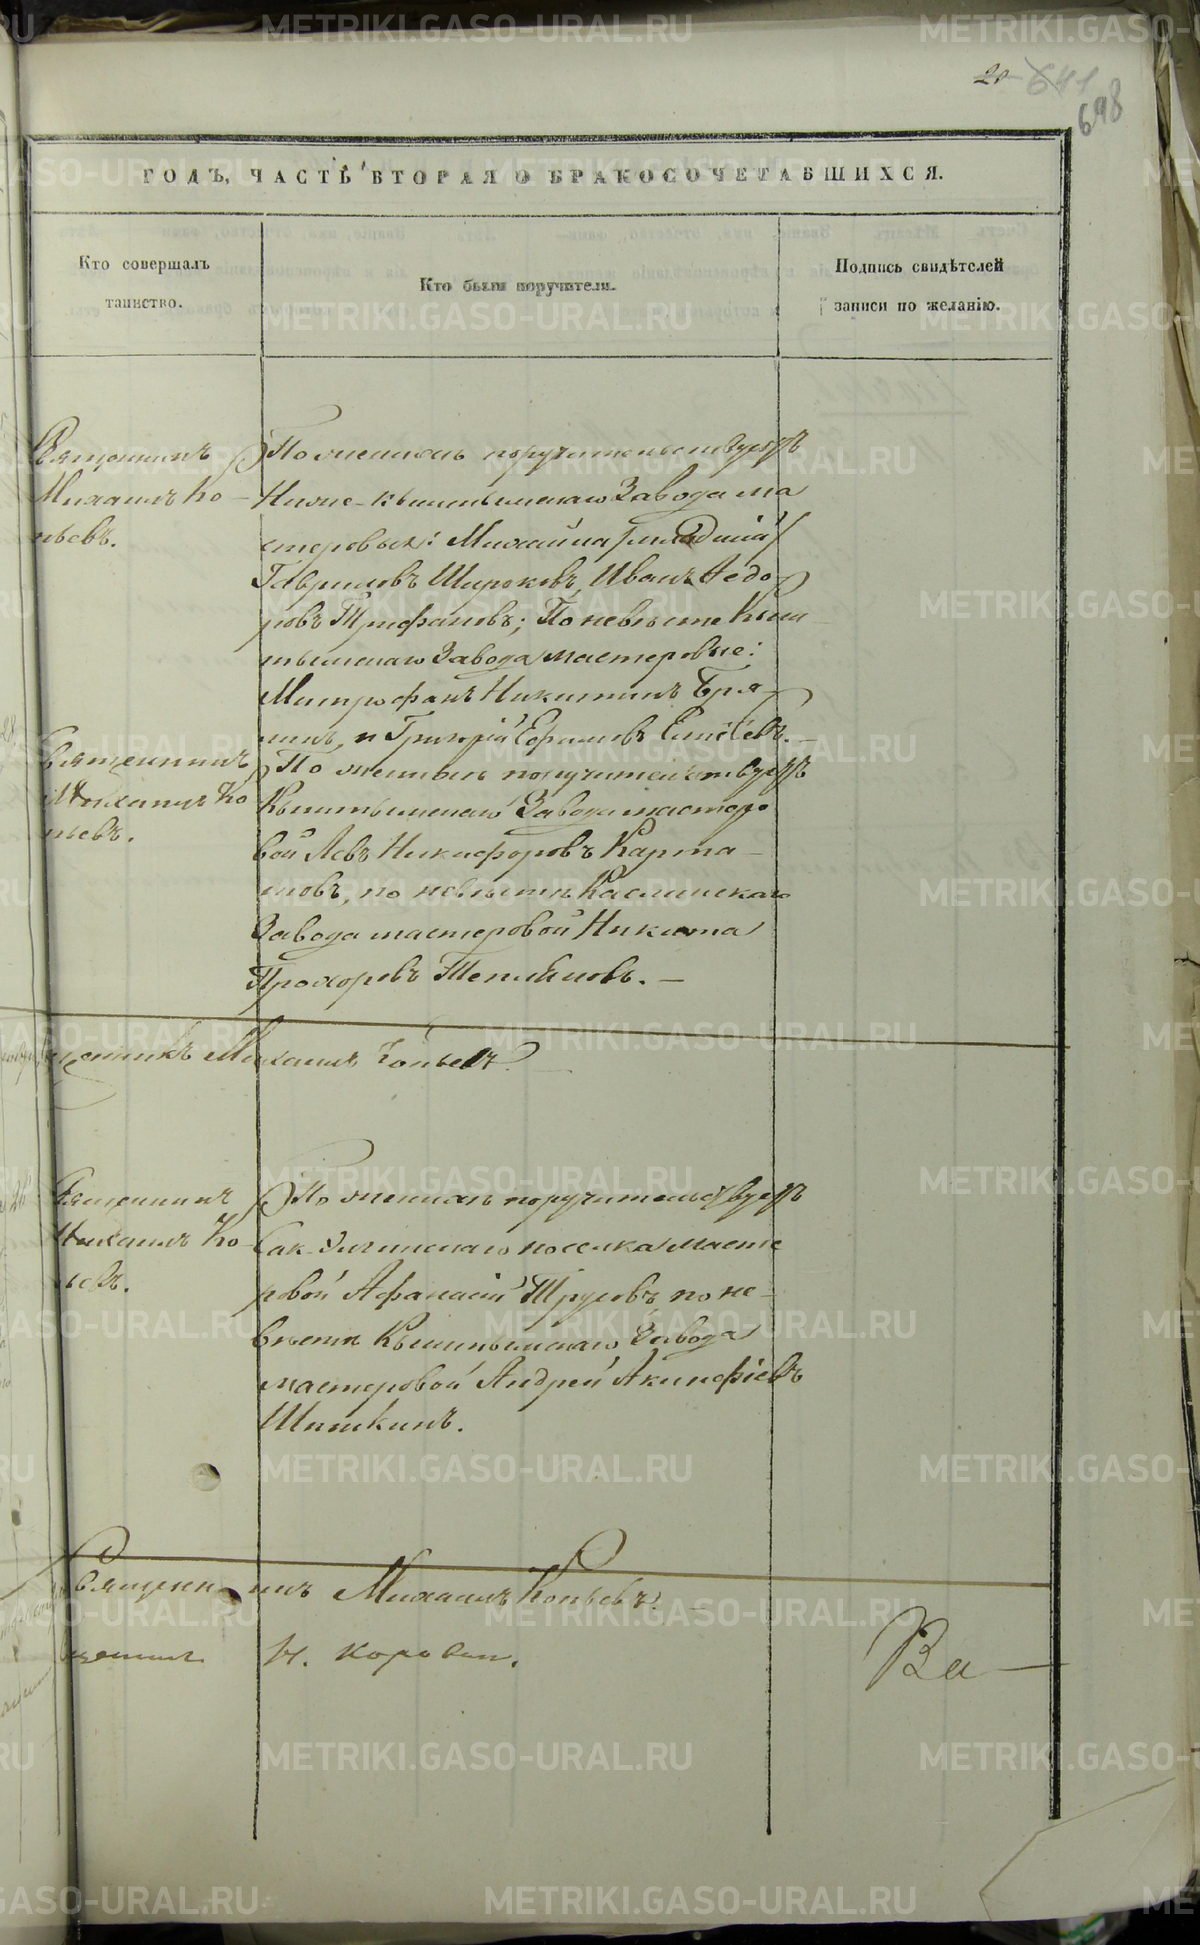 20 641
698
ГОДЪ, ЧАСТЬ ВТОРАЯ О БРАКОСОЧЕТАВШИХСЯ.
Кто совершалъ
таинство.
Кто были поручители.
Подпись свидѣтелей
записи по желанію.
Священникъ
Михаилъ Ко-
пьевъ.
По женихѣ поручительствуютъ
Нижне-Кыштымскаго Завода ма
стеровые:
Гавриловъ Широковъ, Иванъ Ѳедо
ровъ Трифановъ; По невѣсте Кыш
тымскаго Завода мастеровые:
Митрофанъ Никитинъ
и Григорій Ефимовъ
Священникъ
Михаилъ Ко
пьевъ.
По женихѣ поручительствуютъ
Кыштымскаго Завода мастеро
вой Левъ Никифоровъ Карта-
шовъ, по невѣстѣ Каслинскаго
Завода мастеровой Никита
Прохоровъ
Михаилъ Копьевъ.
Священникъ
Михаилъ Ко
пьевъ.
По женихѣ поручительствуютъ
поселка масте
ровой Афанасій Трусовъ, по не-
вѣстѣ Кыштымскаго Завода
мастеровой Андрей Акинфіевъ
Шишкинъ.
Священникъ Михаилъ Копьевъ.
Н. Коровин.
Ва—
METRIKI.GASO-URAL.RU